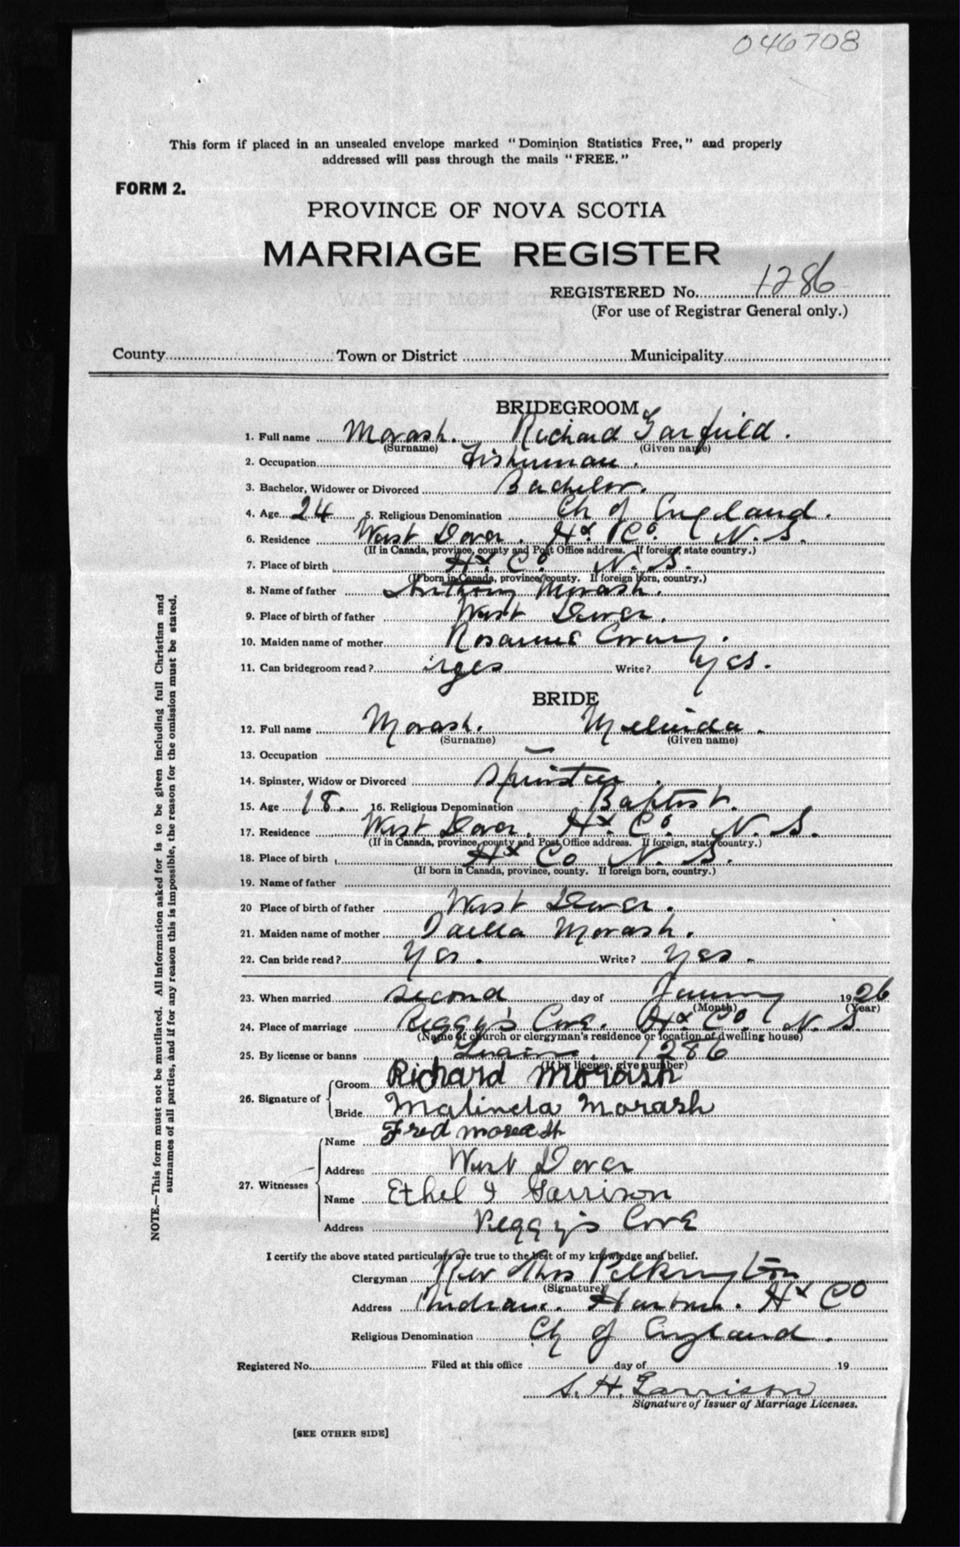 046708
This form if placed in an unsealed envelope marked "Dominion Statistics Free," and properly
addressed will pass through the mails "FREE."
FORM 2.
PROVINCE OF NOVA SCOTIA
MARRIAGE REGISTER
REGISTERED No. 1286
(For use of Registrar General only.)
County Town or District Municipality
BRIDEGROOM
1. Full name Morash. Richard Garfield.
(Surname) (Given name)
2. Occupation Fisherman.
3. Bachelor, Widower or Divorced Bachelor.
4. Age 24 5. Religious Denomination Ch of England.
6. Residence West Dover. Hx. Co. N. S.
(If in Canada, province, county and Post Office address. If foreign, state country.)
7. Place of birth Hx Co N. S.
(If born in Canada, province, county. If foreign born, country.)
8. Name of father Anthony Morash.
9. Place of birth of father West Dover.
10. Maiden name of mother Rosanna
11. Can bridegroom read? yes Write? yes.
BRIDE
12. Full name Morash. Melinda.
(Surname) (Given name)
13. Occupation —
14. Spinster, Widow or Divorced Spinster.
15. Age 18. 16. Religious Denomination Baptist.
17. Residence West Dover. Hx. Co. N. S.
(If in Canada, province, county and Post Office address. If foreign, state country.)
18. Place of birth Hx Co N. S.
(If born in Canada, province, county. If foreign born, country.)
19. Name of father
20 Place of birth of father West Dover.
21. Maiden name of mother Morash.
22. Can bride read? Yes. Write? yes.
23. When married second day of January 1926
(Month) (Year)
24. Place of marriage Peggy's Cove. Hx Co N. S
(Name of church or clergyman's residence or location of dwelling house)
25. By license or banns 1286
(If by license, give number)
26. Signature of
Groom Richard Morash
Bride Malinda Morash
27. Witnesses
Name Fred Morash
Address West Dover
Name Ethel I Garrison
Address Peggy's Cove
I certify the above stated particulars are true to the best of my knowledge and belief.
Clergyman Rev Thos Pilkington
(Signature)
Address Indian Harbour. Hx Co
Religious Denomination Ch of England.
Registered No. Filed at this office day of 19
S. H. Garrison
Signature of Issuer of Marriage Licenses.
[SEE OTHER SIDE]
NOTE.—This form must not be mutilated. All information asked for is to be given including full Christian and
surnames of all parties, and if for any reason this is impossible, the reason for the omission must be stated.